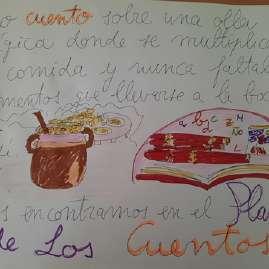 o cuento sobre una olla
gica donde se multiplic
comida y nunca falta
mentos que llevarse a la boc
a b c
d z M
Ño
L
s encontramos en el Pla
de Los Cuentos